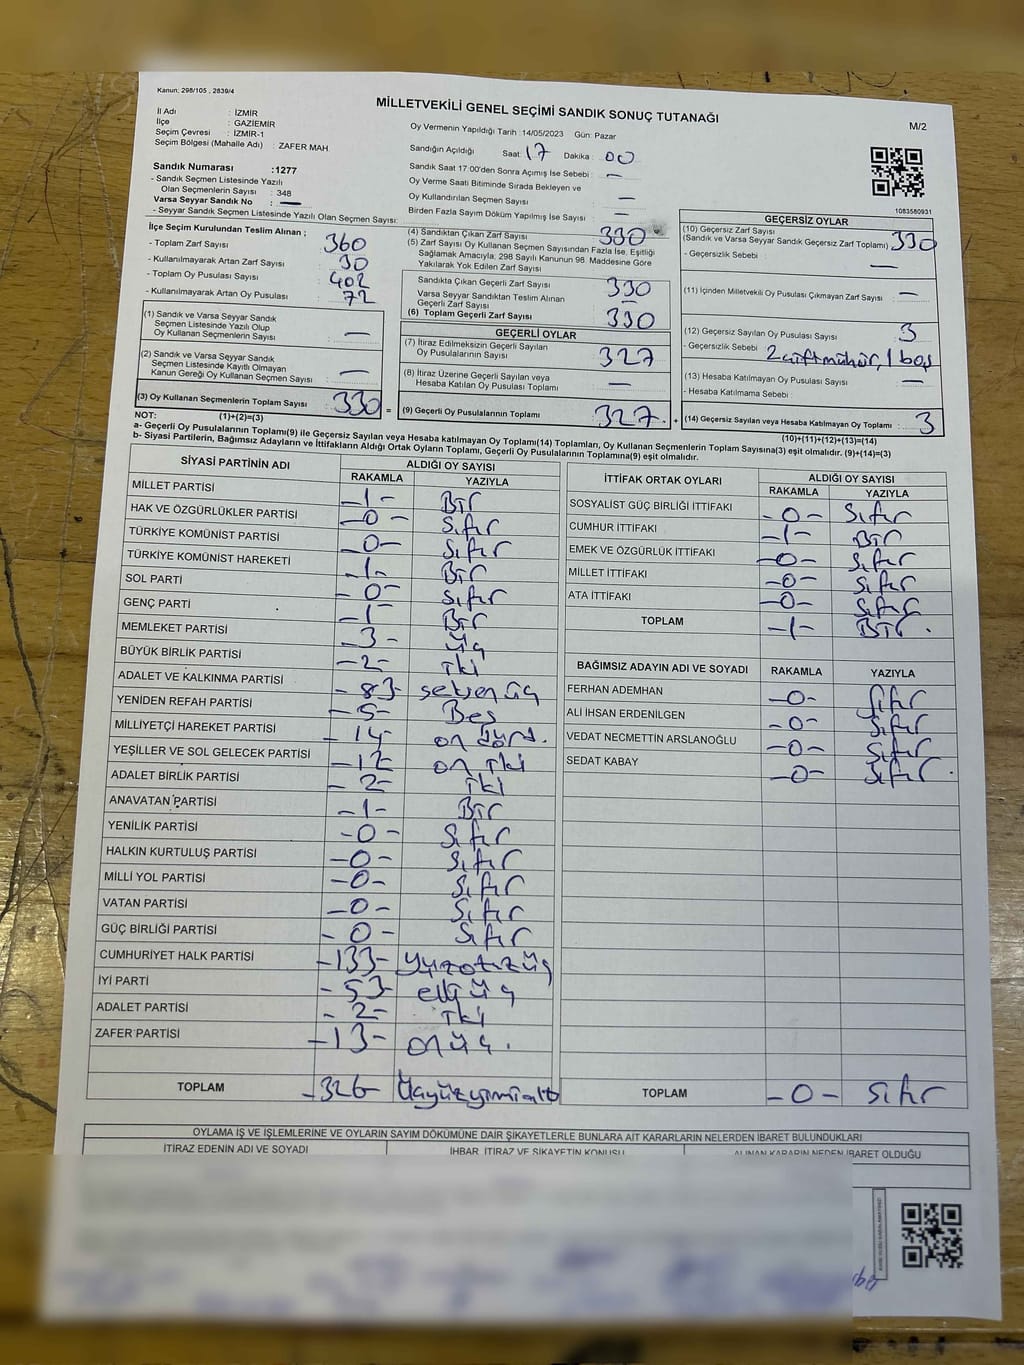 Kanun: 298/105 , 2839/4
MİLLETVEKİLİ GENEL SEÇİMİ SANDIK SONUÇ TUTANAĞI
M/2
İl Adı : İZMİR
İlçe : GAZİEMİR
Seçim Çevresi : İZMİR-1
Seçim Bölgesi (Mahalle Adı) : ZAFER MAH.
Oy Vermenin Yapıldığı Tarih :14/05/2023 Gün: Pazar
Sandığın Açıldığı Saat: 17 Dakika : 00
Sandık Saat 17:00'den Sonra Açımış İse Sebebi : —
Oy Verme Saati Bitiminde Sırada Bekleyen ve
Oy Kullandırılan Seçmen Sayısı : —
Birden Fazla Sayım Döküm Yapılmış İse Sayısı : —
1083580931
Sandık Numarası :1277
- Sandık Seçmen Listesinde Yazılı
Olan Seçmenlerin Sayısı : 348
Varsa Seyyar Sandık No : —
- Seyyar Sandık Seçmen Listesinde Yazılı Olan Seçmen Sayısı:
İlçe Seçim Kurulundan Teslim Alınan ;
- Toplam Zarf Sayısı : 360
- Kullanılmayarak Artan Zarf Sayısı : 30
- Toplam Oy Pusulası Sayısı : 402
- Kullanılmayarak Artan Oy Pusulası : 72
(1) Sandık ve Varsa Seyyar Sandık
Seçmen Listesinde Yazılı Olup
Oy Kullanan Seçmenlerin Sayısı : —
(2) Sandık ve Varsa Seyyar Sandık
Seçmen Listesinde Kayıtlı Olmayan
Kanun Gereği Oy Kullanan Seçmen Sayısı : —
(3) Oy Kullanan Seçmenlerin Toplam Sayısı : 330 =
(4) Sandıktan Çıkan Zarf Sayısı : 330
(5) Zarf Sayısı Oy Kullanan Seçmen Sayısından Fazla İse, Eşitliği
Sağlamak Amacıyla; 298 Sayılı Kanunun 98. Maddesine Göre
Yakılarak Yok Edilen Zarf Sayısı :
Sandıkta Çıkan Geçerli Zarf Sayısı : 330
Varsa Seyyar Sandıktan Teslim Alınan
Geçerli Zarf Sayısı : —
(6) Toplam Geçerli Zarf Sayısı : 330
GEÇERLİ OYLAR
(7) İtiraz Edilmeksizin Geçerli Sayılan
Oy Pusulalarının Sayısı : 327
(8) İtiraz Üzerine Geçerli Sayılan veya
Hesaba Katılan Oy Pusulası Toplamı : —
(9) Geçerli Oy Pusulalarının Toplamı : 327 +
GEÇERSİZ OYLAR
(10) Geçersiz Zarf Sayısı
(Sandık ve Varsa Seyyar Sandık Geçersiz Zarf Toplamı) : 330
- Geçersizlik Sebebi : —
(11) İçinden Milletvekili Oy Pusulası Çıkmayan Zarf Sayısı : —
(12) Geçersiz Sayılan Oy Pusulası Sayısı : 3
- Geçersizlik Sebebi : 2 çift mühür, 1 boş
(13) Hesaba Katılmayan Oy Pusulası Sayısı : —
- Hesaba Katılmama Sebebi :
(14) Geçersiz Sayılan veya Hesaba Katılmayan Oy Toplamı : 3
NOT: (1)+(2)=(3) (10)+(11)+(12)+(13)=(14)
a- Geçerli Oy Pusulalarının Toplamı(9) ile Geçersiz Sayılan veya Hesaba katılmayan Oy Toplamı(14) Toplamları, Oy Kullanan Seçmenlerin Toplam Sayısına(3) eşit olmalıdır. (9)+(14)=(3)
b- Siyasi Partilerin, Bağımsız Adayların ve İttifakların Aldığı Ortak Oyların Toplamı, Geçerli Oy Pusulalarının Toplamına(9) eşit olmalıdır.
SİYASİ PARTİNİN ADI ALDIĞI OY SAYISI
RAKAMLA YAZIYLA
MİLLET PARTİSİ -1- Bir
HAK VE ÖZGÜRLÜKLER PARTİSİ -0- Sıfır
TÜRKİYE KOMÜNİST PARTİSİ -0- Sıfır
TÜRKİYE KOMÜNİST HAREKETİ -1- Bir
SOL PARTİ -0- Sıfır
GENÇ PARTİ -1- Bir
MEMLEKET PARTİSİ -3- Üç
BÜYÜK BİRLİK PARTİSİ -2- İki
ADALET VE KALKINMA PARTİSİ -83- seksen üç
YENİDEN REFAH PARTİSİ -5- Beş
MİLLİYETÇİ HAREKET PARTİSİ -14- on dört.
YEŞİLLER VE SOL GELECEK PARTİSİ -12- on iki
ADALET BİRLİK PARTİSİ -2- iki
ANAVATAN PARTİSİ -1- Bir
YENİLİK PARTİSİ -0- Sıfır
HALKIN KURTULUŞ PARTİSİ -0- Sıfır
MİLLİ YOL PARTİSİ -0- Sıfır
VATAN PARTİSİ -0- Sıfır
GÜÇ BİRLİĞİ PARTİSİ -0- Sıfır
CUMHURİYET HALK PARTİSİ -133- yüzotuzüç
İYİ PARTİ -53- elliüç
ADALET PARTİSİ -2- iki
ZAFER PARTİSİ -13- onüç.
TOPLAM -326- Üçyüzyirmialtı
İTTİFAK ORTAK OYLARI ALDIĞI OY SAYISI
RAKAMLA YAZIYLA
SOSYALİST GÜÇ BİRLİĞİ İTTİFAKI -0- Sıfır
CUMHUR İTTİFAKI -1- Bir
EMEK VE ÖZGÜRLÜK İTTİFAKI -0- Sıfır
MİLLET İTTİFAKI -0- Sıfır
ATA İTTİFAKI -0- Sıfır
TOPLAM -1- Bir.
BAĞIMSIZ ADAYIN ADI VE SOYADI RAKAMLA YAZIYLA
FERHAN ADEMHAN -0- Sıfır
ALİ İHSAN ERDENİLGEN -0- Sıfır
VEDAT NECMETTİN ARSLANOĞLU -0- Sıfır
SEDAT KABAY -0- Sıfır.
TOPLAM -0- Sıfır
OYLAMA İŞ VE İŞLEMLERİNE VE OYLARIN SAYIM DÖKÜMÜNE DAİR ŞİKAYETLERLE BUNLARA AİT KARARLARIN NELERDEN İBARET BULUNDUKLARI
İTİRAZ EDENİN ADI VE SOYADI İHBAR, İTİRAZ VE ŞİKAYETİN KONUSU ALINAN KARARIN NEDEN İBARET OLDUĞU